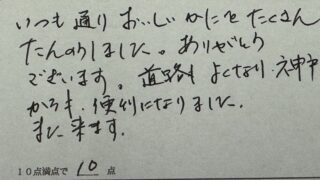 いつも通りおいしいかにをたくさん
たんのうしました。ありがとう
ございます。道路もよくなり、神戸
からも、便利になりました。
また来ます。
10点満点で 10 点